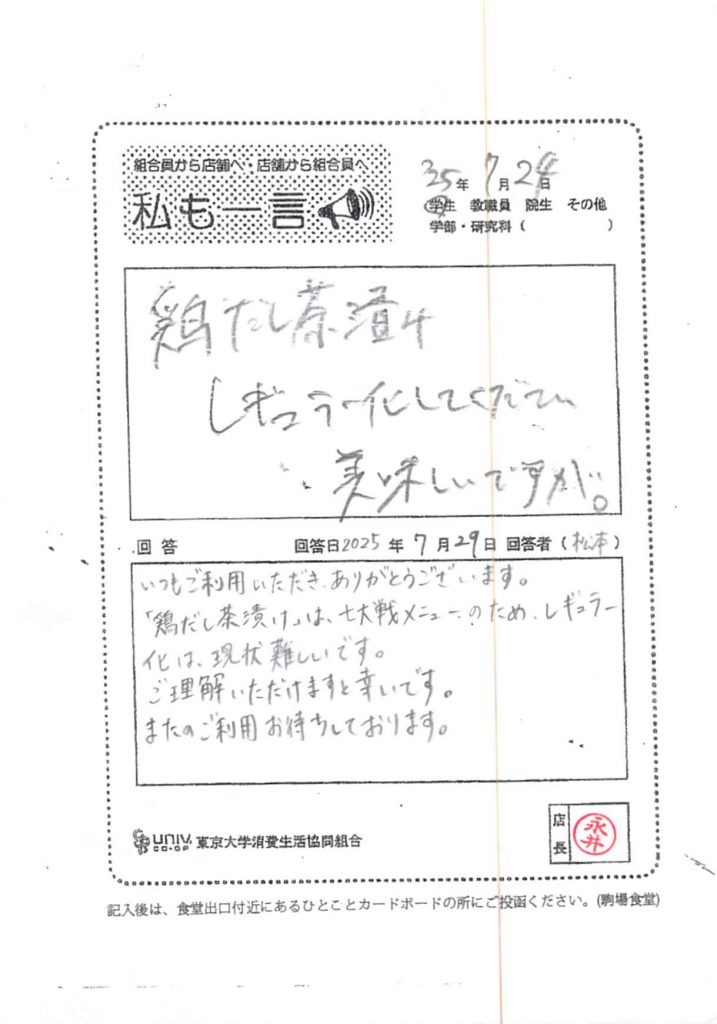 組合員から店舗へ・店舗から組合員へ
私も一言
25年 7月24日
学生 教職員 院生 その他
学部・研究科（ ）
鶏だし茶漬け
レギュラー化してください
美味しいですが。
回答 回答日2025年 7月29日 回答者（松本）
いつもご利用いただき、ありがとうございます。
「鶏だし茶漬け」は、七大戦メニューのため、レギュラー
化は、現状難しいです。
ご理解いただけますと幸いです。
またのご利用お待ちしております。
UNIV. CO-OP 東京大学消費生活協同組合
店長 永井
記入後は、食堂出口付近にあるひとことカードボードの所にご投函ください。(駒場食堂)